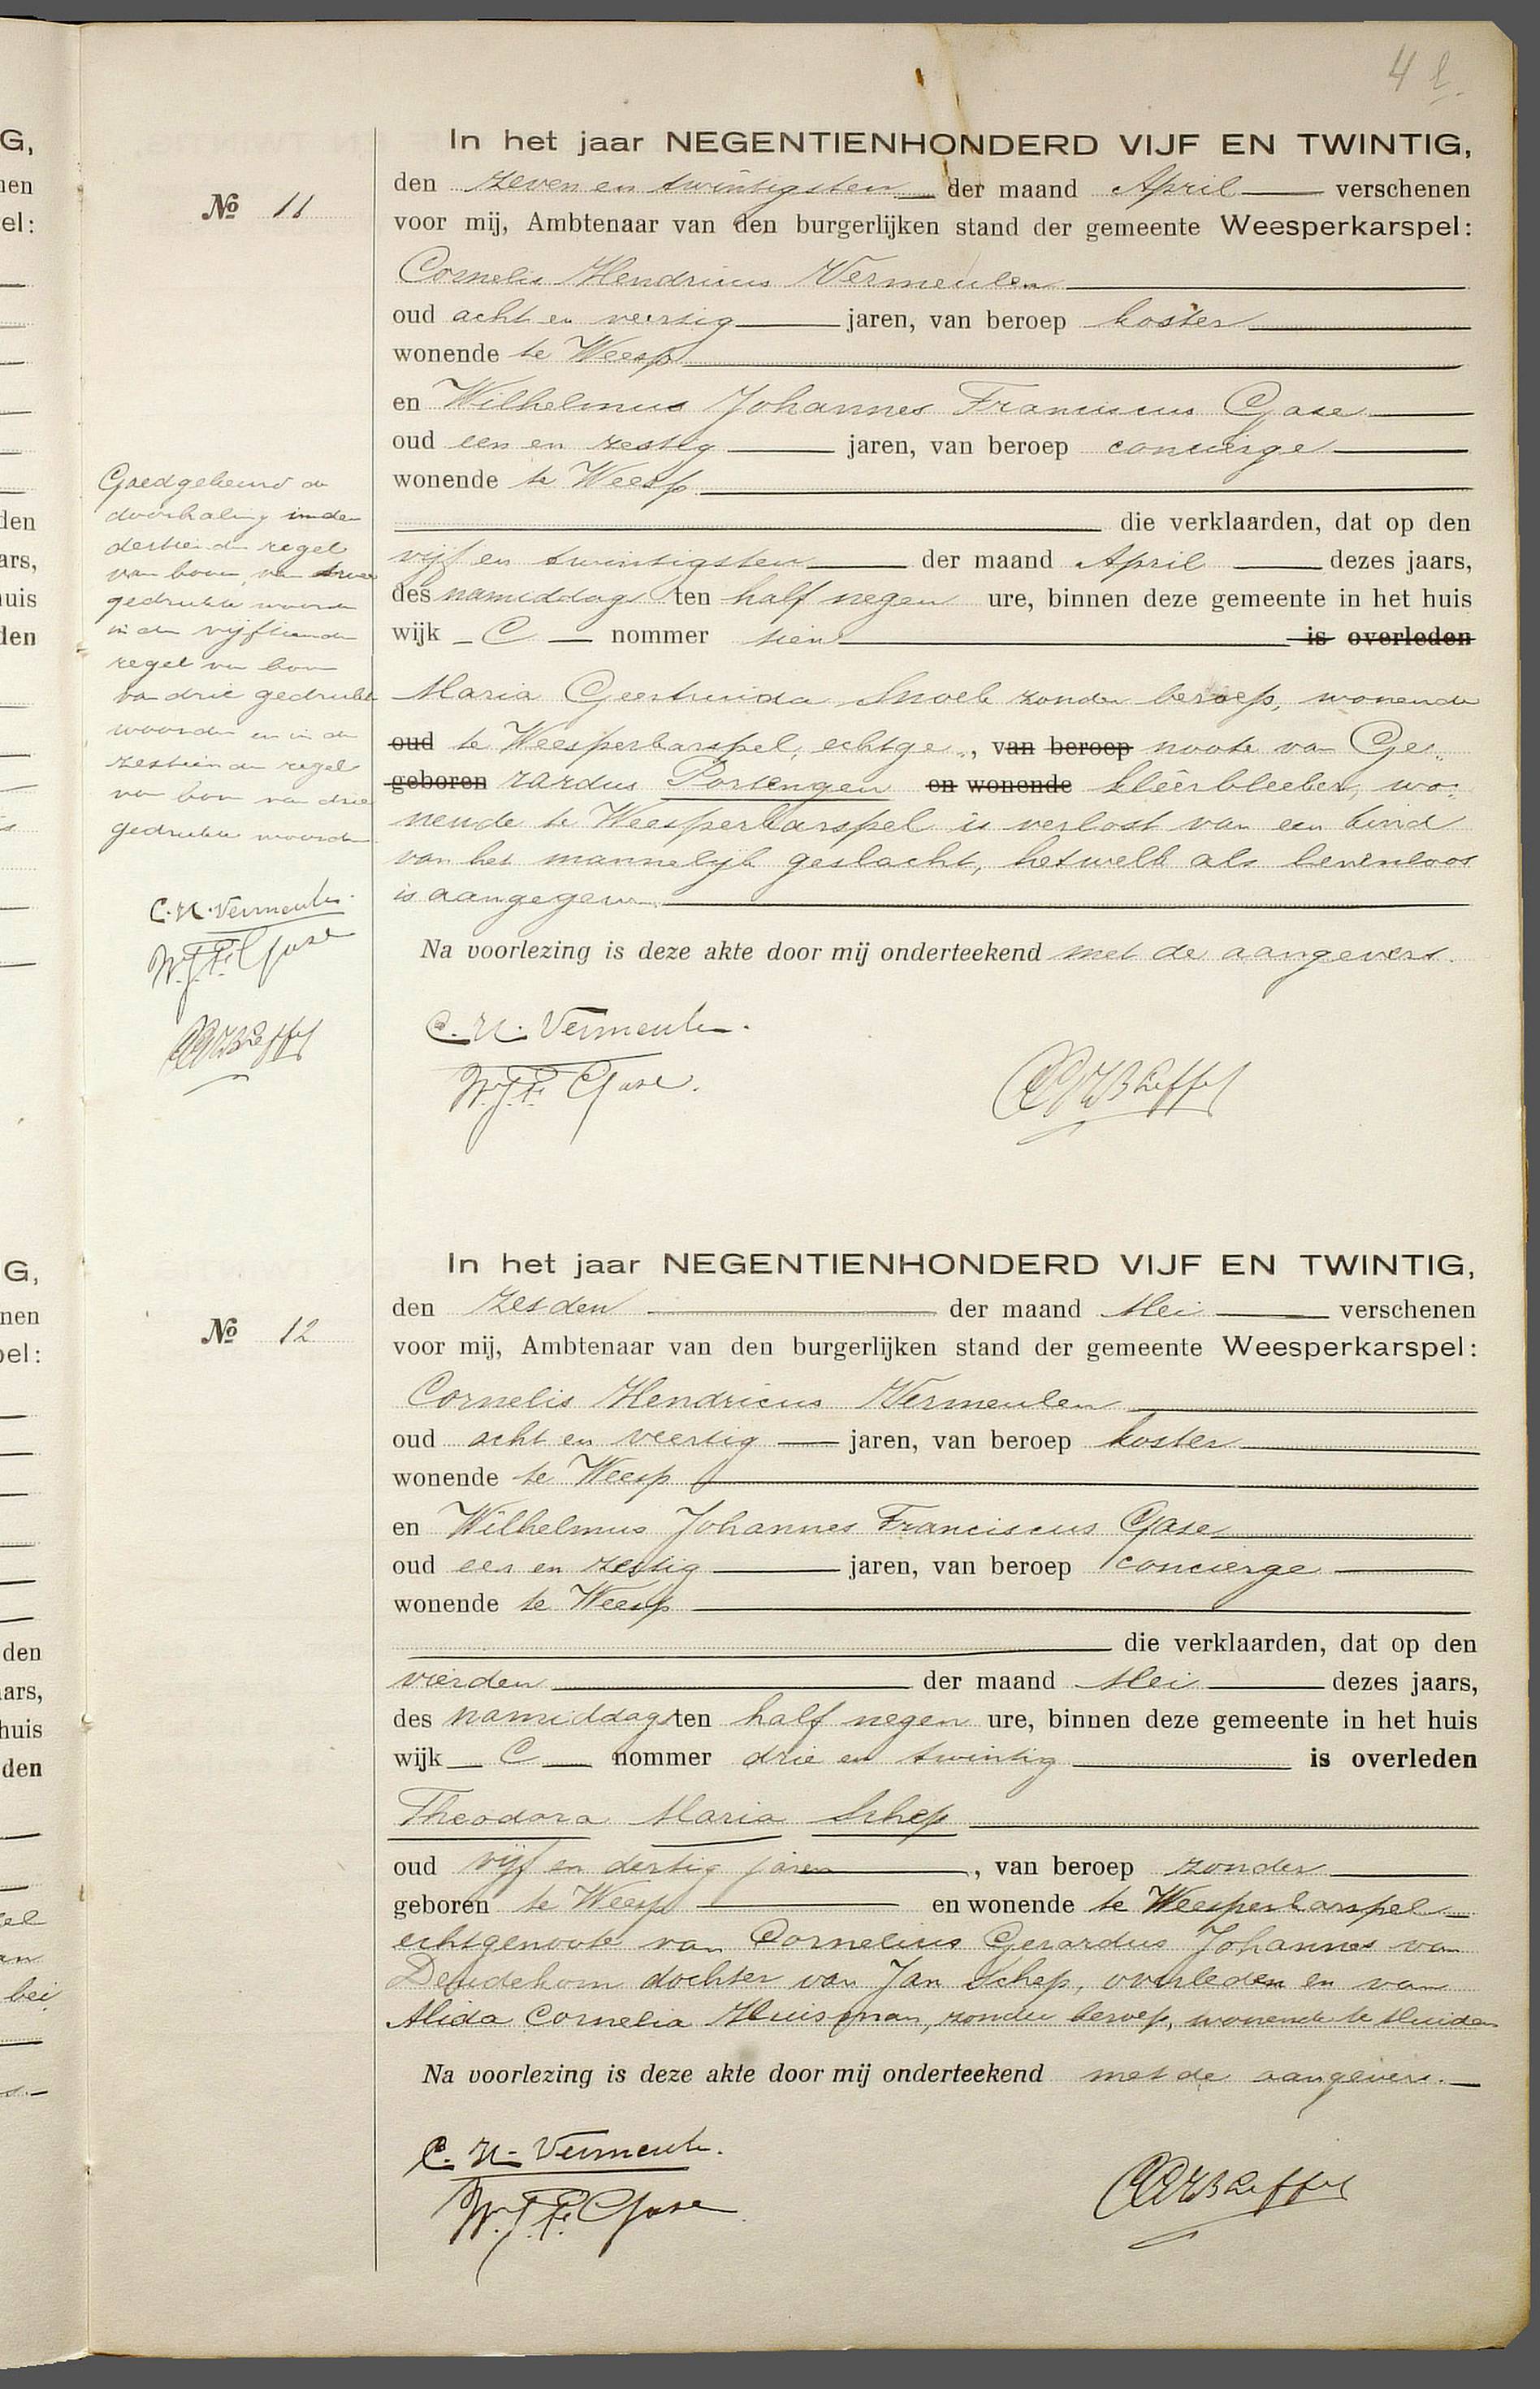 4
In het jaar NEGENTIENHONDERD VIJF EN TWINTIG,
den zeven en twintigsten der maand April verschenen
voor mij, Ambtenaar van den burgerlijken stand der gemeente Weesperkarspel:
No 11
Cornelis Hendricus Vermeulen
oud acht en veertig jaren, van beroep koster
wonende te Weesp
en Wilhelmus Johannes Franciscus Gase
oud een en zestig jaren, van beroep concierge
wonende te Weesp
die verklaarden, dat op den
vijf en twintigsten der maand April dezes jaars,
des namiddags ten half negen ure, binnen deze gemeente in het huis
wijk C nommer tien is overleden
Maria Geertruida Snoek zonder beroep, wonende
oud te Weesperkarspel, echtge-, van beroep noote van Ge-
geboren rardus Portengen en wonende kleerbleeker, wo-
nende te Weesperkarspel is verlost van een kind
van het mannelijk geslacht, hetwelk als levenloos
is aangegeven.
Na voorlezing is deze akte door mij onderteekend met de aangevers.
C. H. Vermeulen.
W. J. F. Gase.
Goedgekeurd de
doorhaling in den
dertienden regel
van boven van twee
gedrukte woorden
in den vijftienden
regel van boven
van drie gedrukte
woorden en in den
zestienden regel
van boven van drie
gedrukte woorden
C. H. Vermeulen.
W. J. F. Gase
In het jaar NEGENTIENHONDERD VIJF EN TWINTIG,
den zesden der maand Mei verschenen
No 12
voor mij, Ambtenaar van den burgerlijken stand der gemeente Weesperkarspel:
Cornelis Hendricus Vermeulen
oud acht en veertig jaren, van beroep koster
wonende te Weesp
en Wilhelmus Johannes Franciscus Gase
oud een en zestig jaren, van beroep concierge
wonende te Weesp
die verklaarden, dat op den
vierden der maand Mei dezes jaars,
des namiddags ten half negen ure, binnen deze gemeente in het huis
wijk C nommer drie en twintig is overleden
Theodora Maria Schep
oud vijf en dertig jaren, van beroep zonder
geboren te Weesp en wonende te Weesperkarspel
echtgenoote van Cornelius Gerardus Johannes van
Deudekom dochter van Jan Schep, overleden en van
Alida Cornelia Huisman, zonder beroep, wonende te Muiden
Na voorlezing is deze akte door mij onderteekend met de aangevers.
C. H. Vermeulen.
W. J. F. Gase